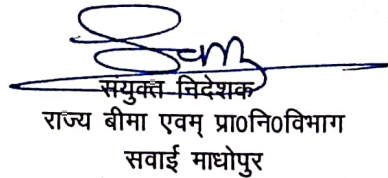 सयुक्त निदेशक
राज्य बीमा एवम् प्रा०नि०विभाग
सवाई माधोपुर